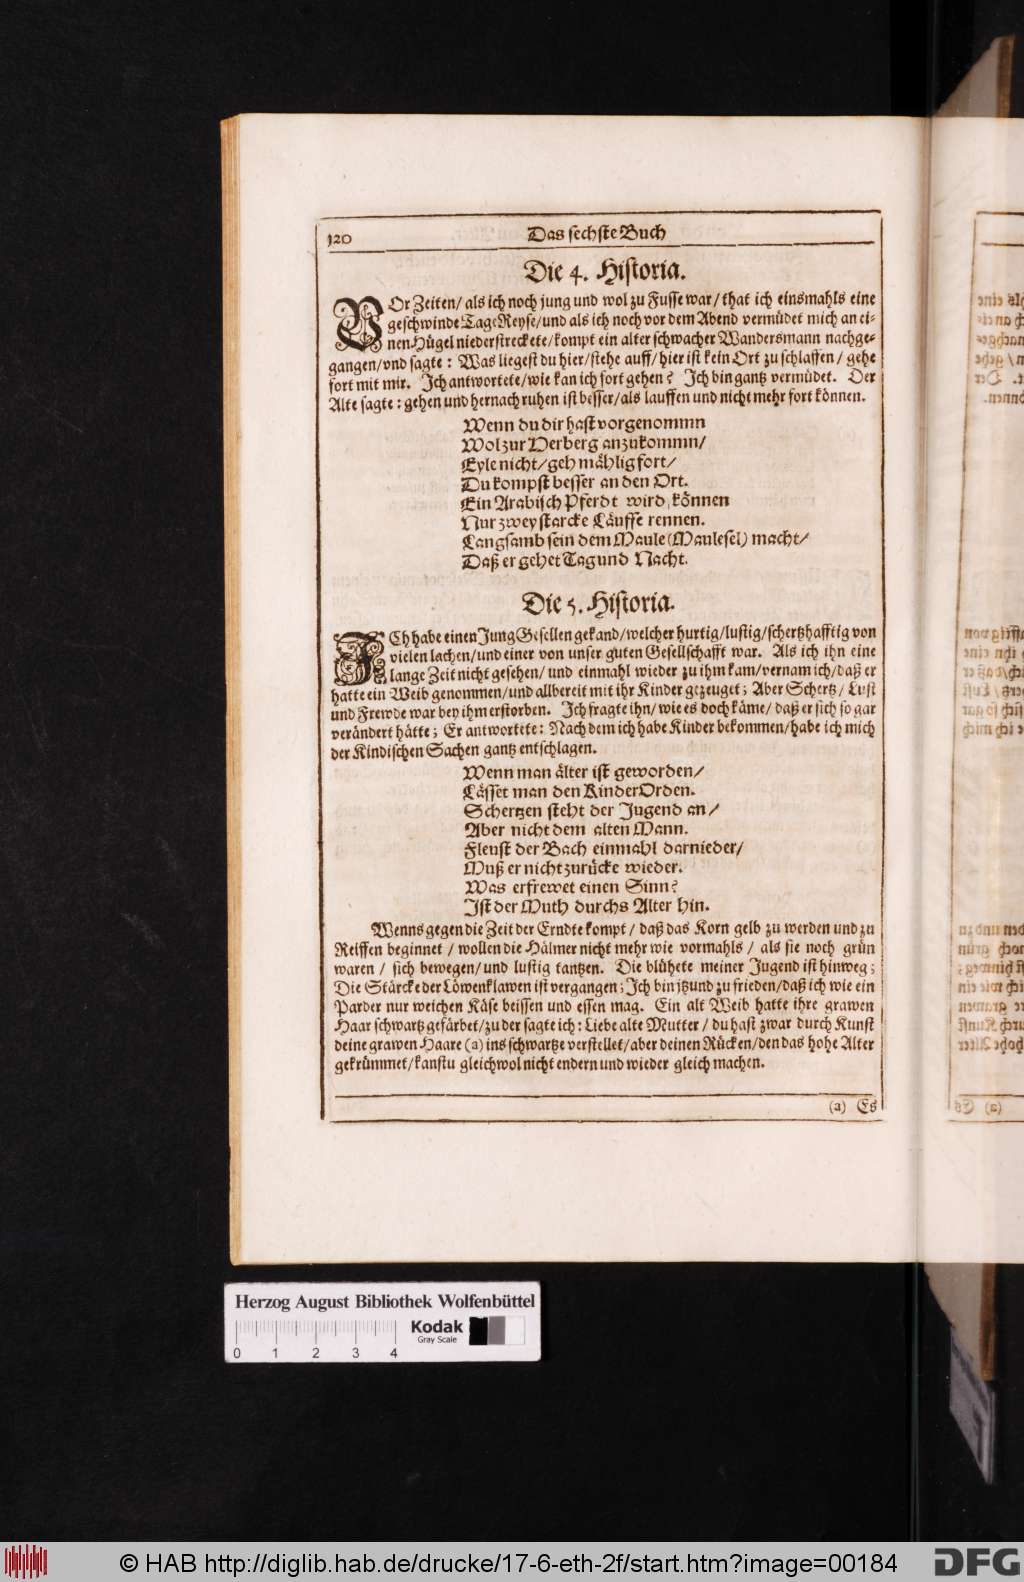 120 Das sechste Buch
Die 4. Historia.
VOr Zeiten/ als ich noch jung und wol zu Fusse war/ that ich einsmahls eine
geschwinde Tage Reyse/ und als ich noch vor dem Abend vermüdet mich an ei-
nen Hügel niederstreckete/ kompt ein alter schwacher Wandersmann nachge-
gangen/ und sagte: Was liegest du hier/ stehe auff/ hier ist kein Ort zu schlaffen/ gehe
fort mit mir. Ich antwortete/ wie kan ich fort gehen? Ich bin gantz vermüdet. Der
Alte sagte: gehen und hernach ruhen ist besser/ als lauffen und nicht mehr fort können.
Wenn du dir hast vorgenommn
Wol zur Herberg anzukommn/
Eyle nicht/ geh mählig fort/
Du kompst besser an den Ort.
Ein Arabisch Pferdt wird können
Nur zwey starcke Läuffe rennen.
Langsamb sein dem Maule (Maulesel) macht/
Daß er gehet Tag und Nacht.
Die 5. Historia.
ICh habe einen Jung Gesellen gekand/ welcher hurtig/ lustig/ schertzhafftig von
vielen lachen/ und einer von unser guten Gesellschafft war. Als ich ihn eine
lange Zeit nicht gesehen/ und einmahl wieder zu ihm kam/ vernam ich/ daß er
hatte ein Weib genommen/ und allbereit mit ihr Kinder gezeuget; Aber Schertz/ Lust
und Frewde war bey ihm erstorben. Ich fragte ihn/ wie es doch käme/ daß er sich so gar
verändert hätte; Er antwortete: Nach dem ich habe Kinder bekommen/ habe ich mich
der Kindischen Sachen gantz entschlagen.
Wenn man älter ist geworden/
Lässet man den Kinder Orden.
Schertzen steht der Jugend an/
Aber nicht dem alten Mann.
Fleust der Bach einmahl darnieder/
Muß er nicht zurücke wieder.
Was erfrewet einen Sinn?
Ist der Muth durchs Alter hin.
Wenns gegen die Zeit der Erndte kompt/ daß das Korn gelb zu werden und zu
Reiffen beginnet/ wollen die Hälmer nicht mehr wie vormahls/ als sie noch grün
waren/ sich bewegen/ und lustig tantzen. Die blühete meiner Jugend ist hinweg;
Die Stärcke der Löwenklawen ist vergangen; Ich bin itzund zu frieden/ daß ich wie ein
Parder nur weichen Käse beissen und essen mag. Ein alt Weib hatte ihre grawen
Haar schwartz gefärbet/ zu der sagte ich: Liebe alte Mutter/ du hast zwar durch Kunst
deine grawen Haare (a) ins schwartze verstellet/ aber deinen Rücken/ den das hohe Alter
gekrümmet/ kanstu gleichwol nicht endern und wieder gleich machen.
(a) Es
Herzog August Bibliothek Wolfenbüttel
Kodak
Gray Scale
0 1 2 3 4
© HAB http://diglib.hab.de/drucke/17-6-eth-2f/start.htm?image=00184
DFG